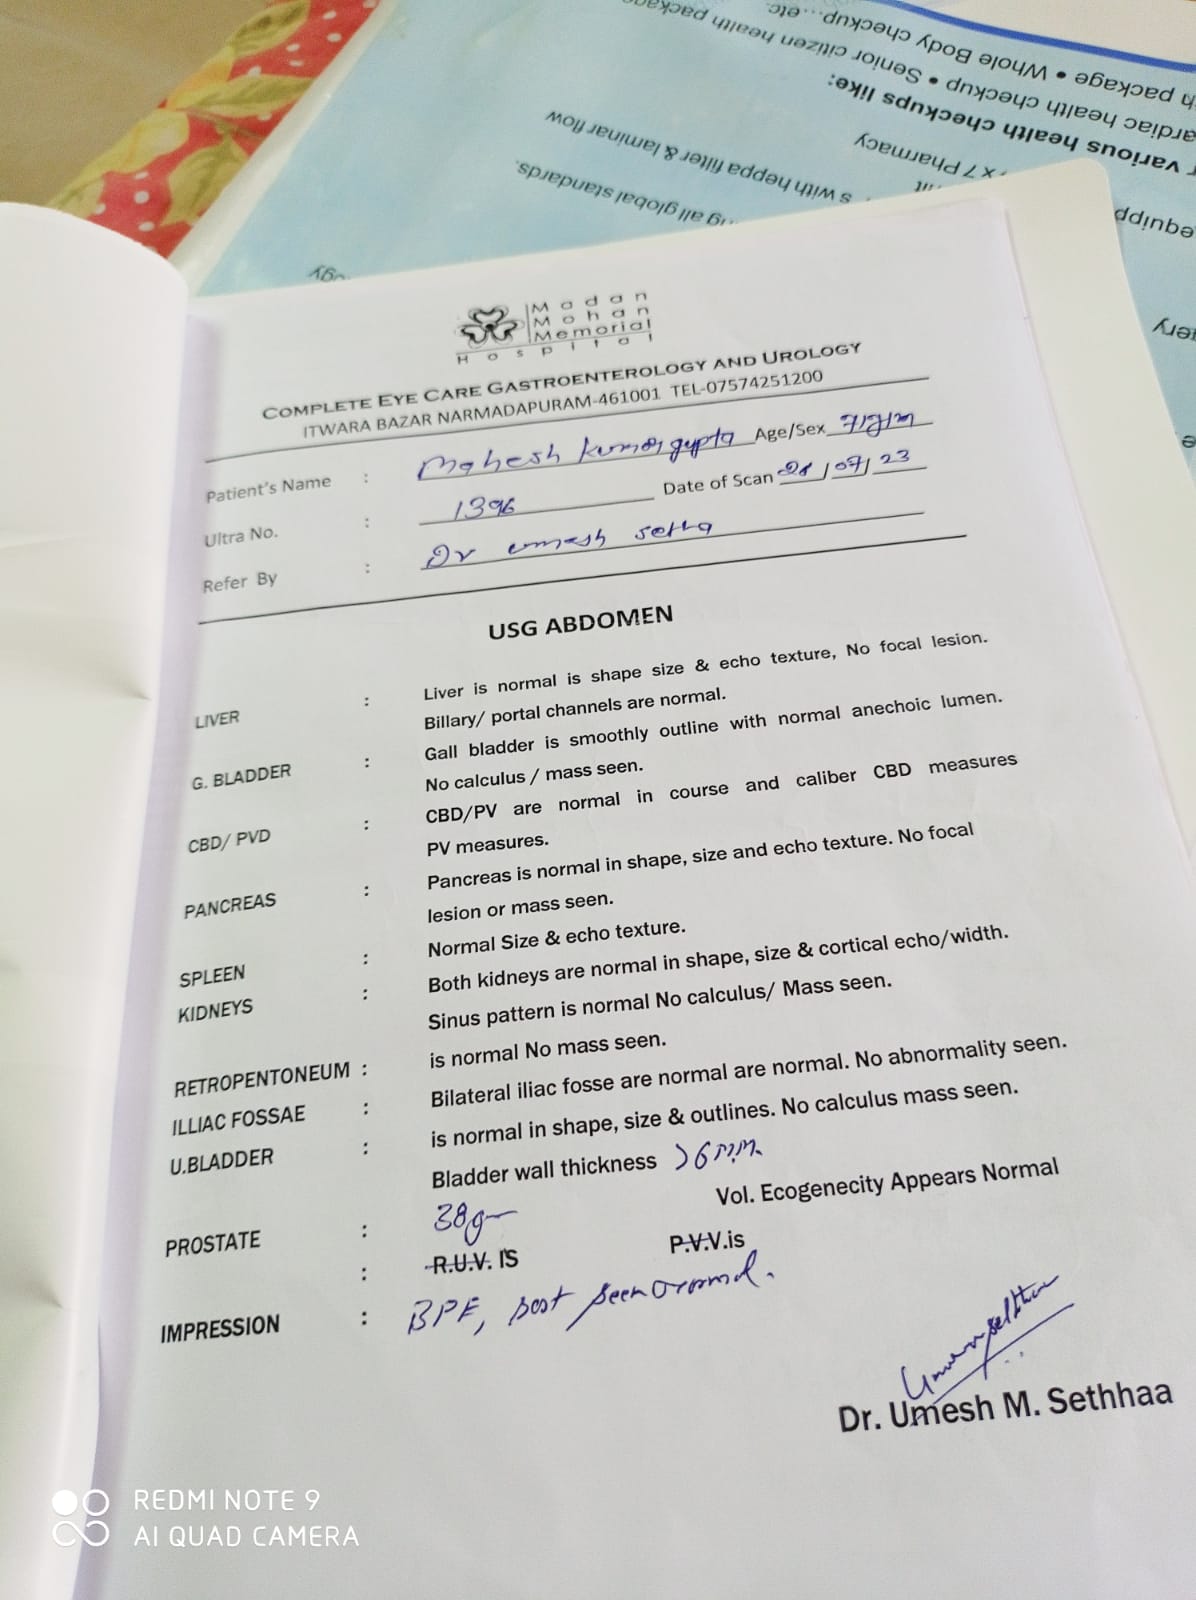 h package • Whole Body checkup...etc.
ardiac health checkup • Senior citizen health package
r various health checkups like:
x 7 Pharmacy
s with heppa filter & laminar flow
ng all global standards.
equipp
Madan
Mohan
Memorial
Hospital
COMPLETE EYE CARE GASTROENTEROLOGY AND UROLOGY
ITWARA BAZAR NARMADAPURAM-461001 TEL-07574251200
Patient's Name : Mahesh Kumar gupta Age/Sex
Ultra No. : 1396 Date of Scan /07/23
Refer By : Dr umesh setha
USG ABDOMEN
LIVER : Liver is normal is shape size & echo texture, No focal lesion.
Billary/ portal channels are normal.
G. BLADDER : Gall bladder is smoothly outline with normal anechoic lumen.
No calculus / mass seen.
CBD/ PVD : CBD/PV are normal in course and caliber CBD measures
PV measures.
PANCREAS : Pancreas is normal in shape, size and echo texture. No focal
lesion or mass seen.
SPLEEN : Normal Size & echo texture.
KIDNEYS : Both kidneys are normal in shape, size & cortical echo/width.
Sinus pattern is normal No calculus/ Mass seen.
RETROPENTONEUM : is normal No mass seen.
ILLIAC FOSSAE : Bilateral iliac fosse are normal are normal. No abnormality seen.
U.BLADDER : is normal in shape, size & outlines. No calculus mass seen.
Bladder wall thickness >6mm.
PROSTATE : 38g Vol. Ecogenecity Appears Normal
: R.U.V. IS P.V.V.is
IMPRESSION : BPE,
Dr. Umesh M. Sethhaa
REDMI NOTE 9
AI QUAD CAMERA